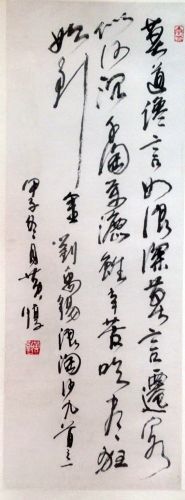 莫道讒言如浪深莫言遷客
似沙沉千淘萬漉雖辛苦吹盡狂
始到金劉禹錫浪淘沙九首之一
甲子冬月黃惇